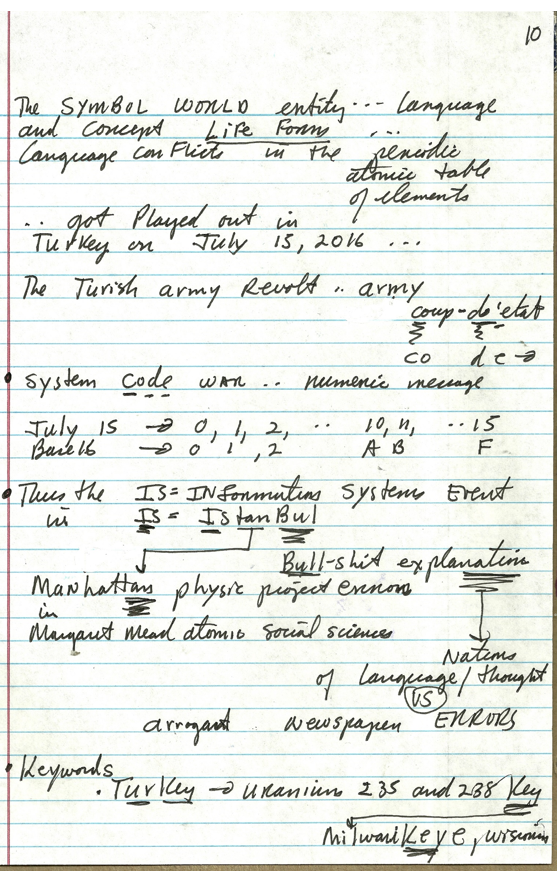 10
The SYMBOL WORLD entity... language
and Concept Life Forms ...
Language conflicts in the periodic
atomic table
of elements
... got Played out in
Turkey on July 15, 2016 ...
The Turish army Revolt .. army
coup-de'etat
co de →
• System Code WAR .. numeric message
July 15 → 0, 1, 2, .. 10, 11, ..15
Base 16 → 0 1 ,2 A B F
• Thus the IS = INformation Systems Event
in IS = IstanBul
Bull-shit explanation
Manhattan physic project errors
in
Margaret Mead atomic social sciences
Nations
of language/thought
VS
arrogant newspaper ERRORS
• Keywords
. Turkey → Uranium 235 and 238 Key
MilwauKeye, wisconsin